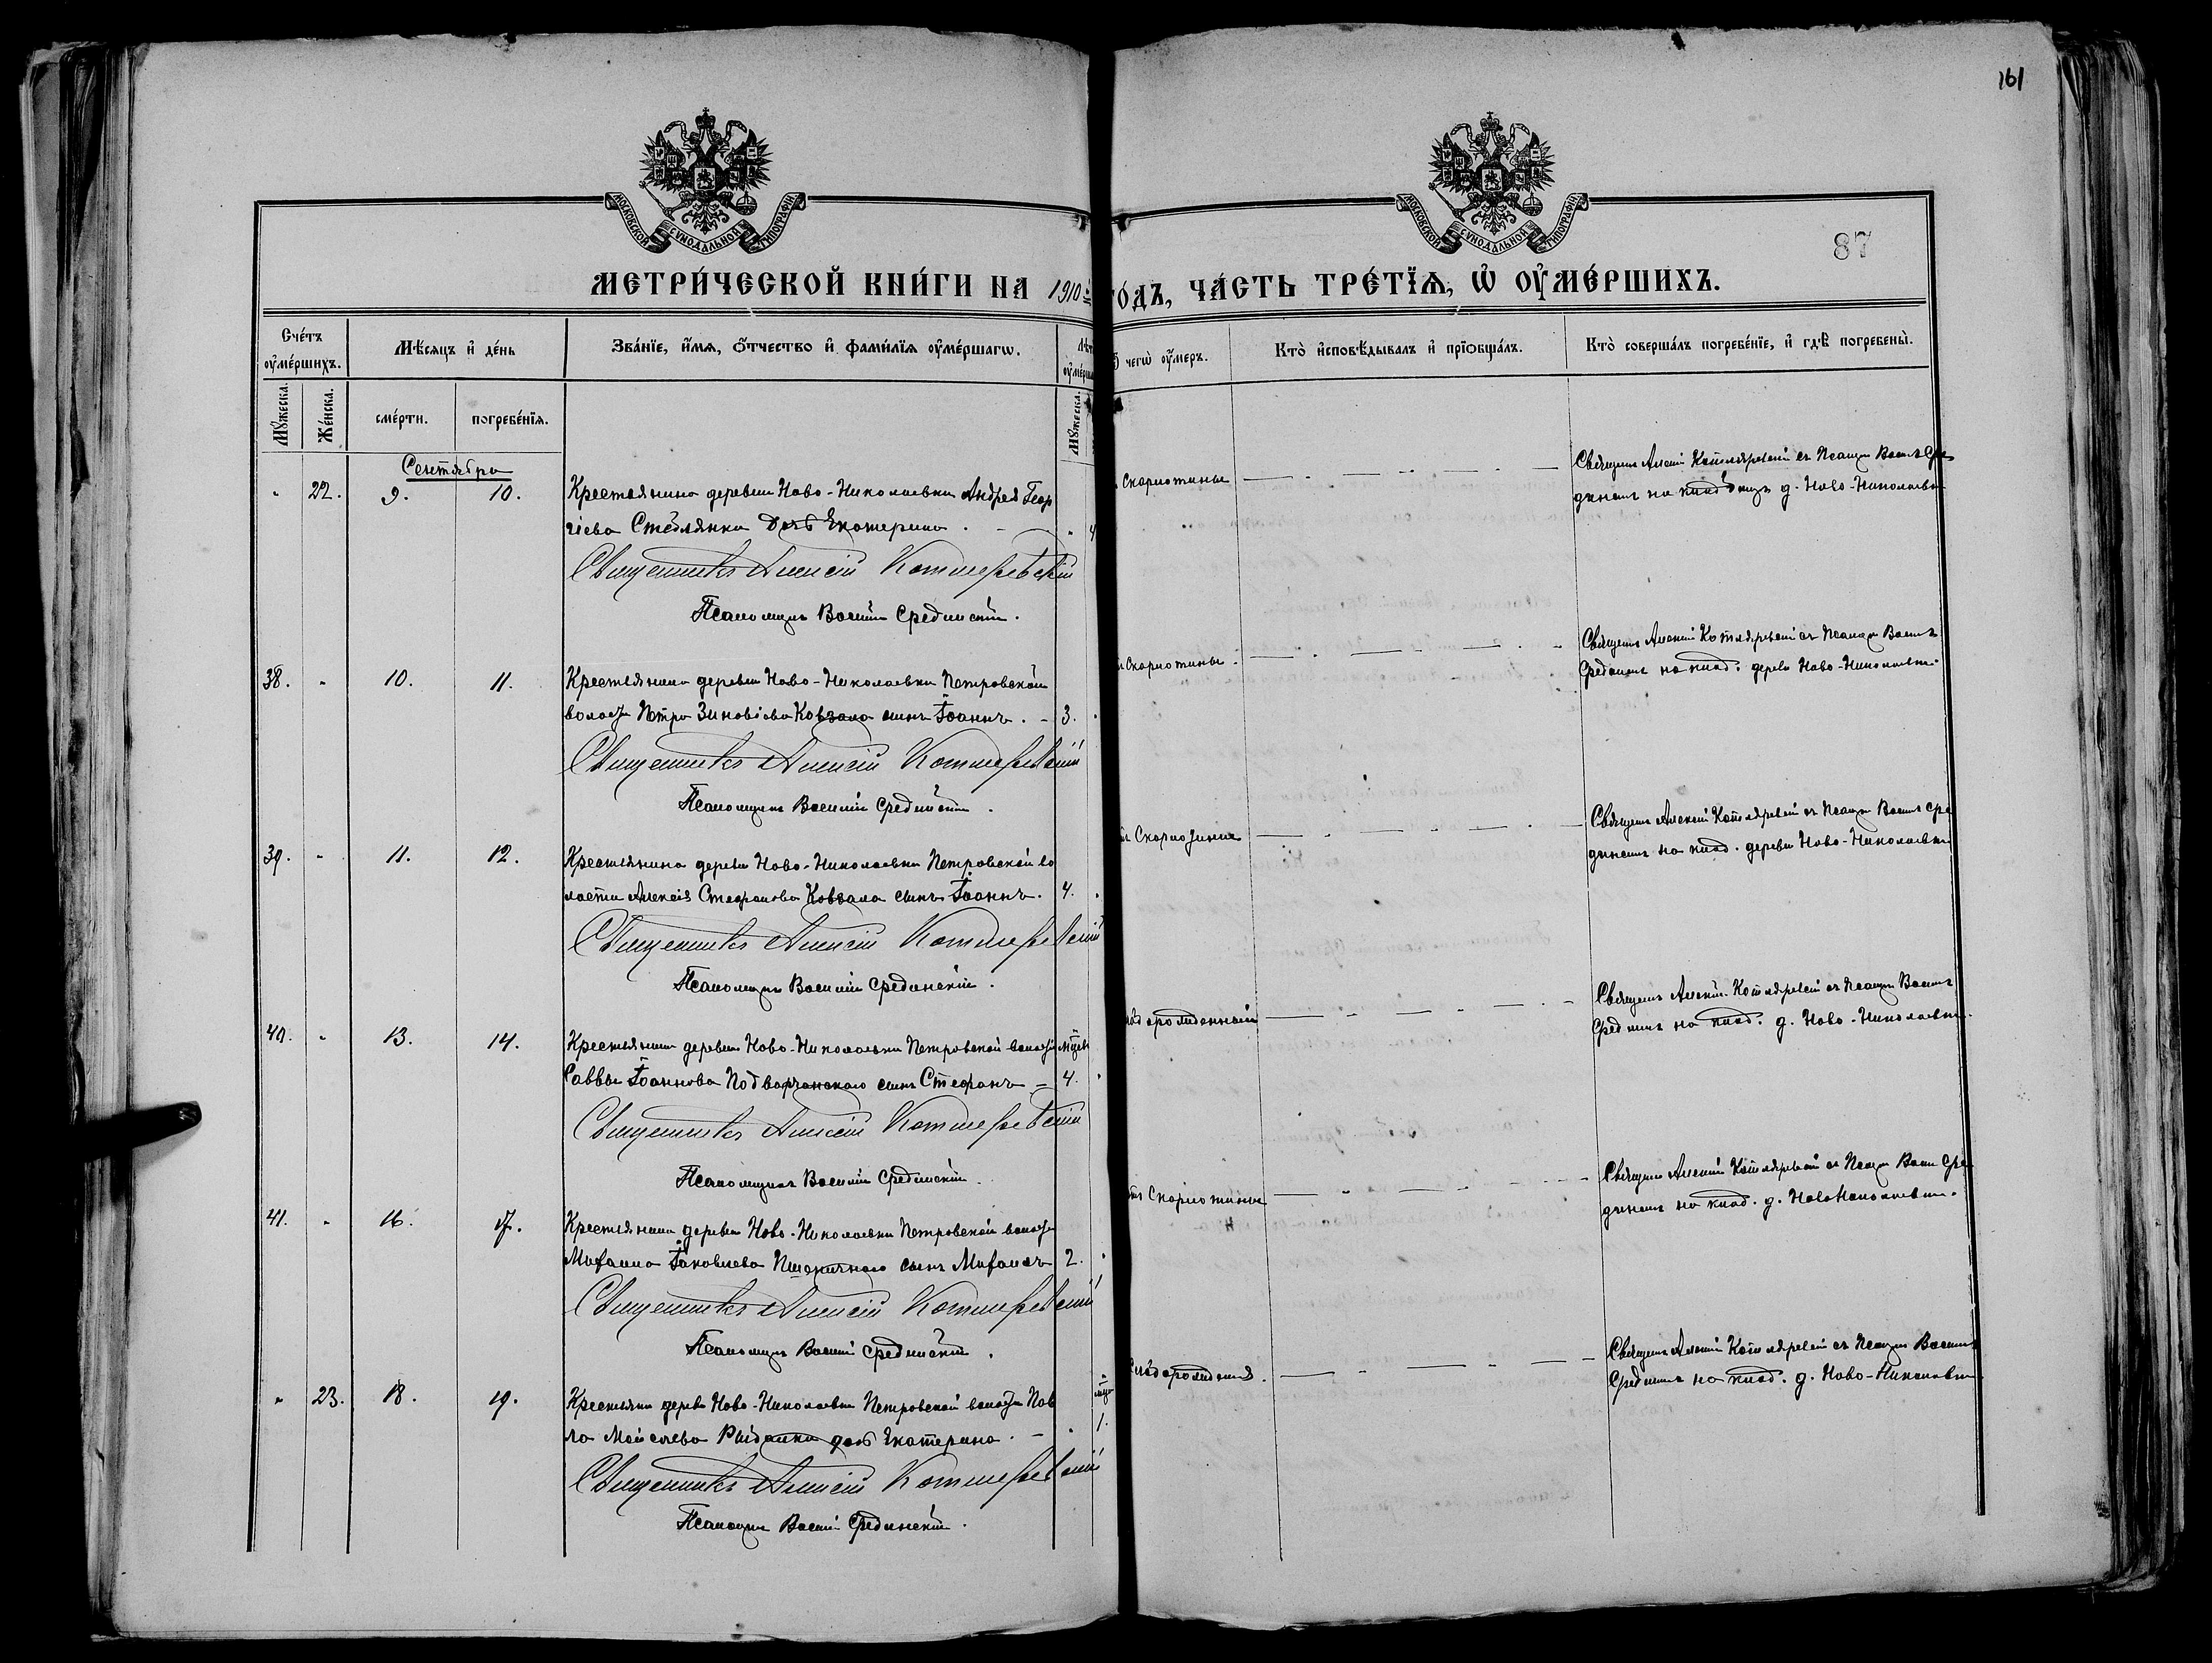 161
87
МОСКОВСКОЙ СѴНОДАЛЬНОЙ ТИПОГРАФІИ
МОСКОВСКОЙ СѴНОДАЛЬНОЙ ТИПОГРАФІИ
МЕТРИ́ЧЕСКОЙ КНИ́ГИ НА 1910
О́ДЪ, ЧА́СТЬ ТРЕ́ТЇѦ, Ѡ҆ ОУ҆МЕ́РШИХЪ.
Сче́тъ оу҆ме́ршихъ.
Мѣ́сяцъ и҆ де́нь
Зва́нїе, и҆́мѧ, ѻ҆́тчество и҆ фами́лїѧ оу҆ме́ршагѡ.
чегѡ̀ оу҆́меръ.
Кто̀ и҆сповѣ́дывалъ и҆ прїѻбща́лъ.
Кто̀ соверша́лъ погребе́нїе, и҆ гдѣ̀ погребены̀.
Мꙋ́жеска.
Же́нска.
сме́рти.
погребе́нїѧ.
Мꙋ́жеска.
Сентября
22. 9. 10. Крестьянина деревни Ново-Николаевки Андрея Геор
гіева Стеблянка дочь Екатерина.
Священникъ Алексій Котляревскій
Псаломщикъ Василій Срединскій.
Скарлотины
Священ Алексій Котляревскій съ Псаломщ Васил Сре
динскимъ на кладбищѣ д. Ново-Николаевки
38. 10. 11. Крестьянина деревни Ново-Николаевки Петровской
волости Петра Зиновіева Ковзала сынъ Іоаннъ. 3.
Священникъ Алексій Котляревскій
Псаломщикъ Василій Срединскій.
Скарлотины.
Священ Алексій Котляревскій съ Псаломщ Васил
Средин на клад. дерев Ново-Николаевки.
39. 11. 12. Крестьянина деревни Ново-Николаевки Петровской во
лости Алексія Стефанова Ковзала сынъ Іоаннъ. 4.
Священникъ Алексій Котляревскій
Псаломщикъ Василій Срединскій.
Скарлотины
Священ Алексій Котляревскій съ Псаломщ Васил Сре
динскимъ на клад. деревни Ново-Николаевки
40. 13. 14. Крестьянина деревни Ново-Николаевки Петровской волости
Саввы Іоаннова Подварчанскаго сынъ Стефанъ 4.
Священникъ Алексій Котляревскій
Псаломщикъ Василій Срединскій.
Священ Алексій Котляревскій съ Псаломщ Васил
Средин на клад. д. Ново-Николаевки.
41. 16. 17. Крестьянина деревни Ново-Николаевки Петровской волости
Михаила Іаковлева Пшеничнаго сынъ Михаилъ 2.
Священникъ Алексій Котляревскій
Псаломщикъ Василій Срединскій.
Скарлотины
Священ Алексій Котляревскій съ Псаломщ Васил Сре
динскимъ на клад. д. Ново Николаевки.
23. 18. 19. Крестьянина дерев Ново-Николаевки Петровской волости Пав
ла Моисеева Рыбалки дочь Екатерина. 1.
Священникъ Алексій Котляревскій
Псаломщикъ Василій Срединскій.
Священ Алексій Котляревскій съ Псаломщ Васил
Средин на клад. д. Ново-Николаевки